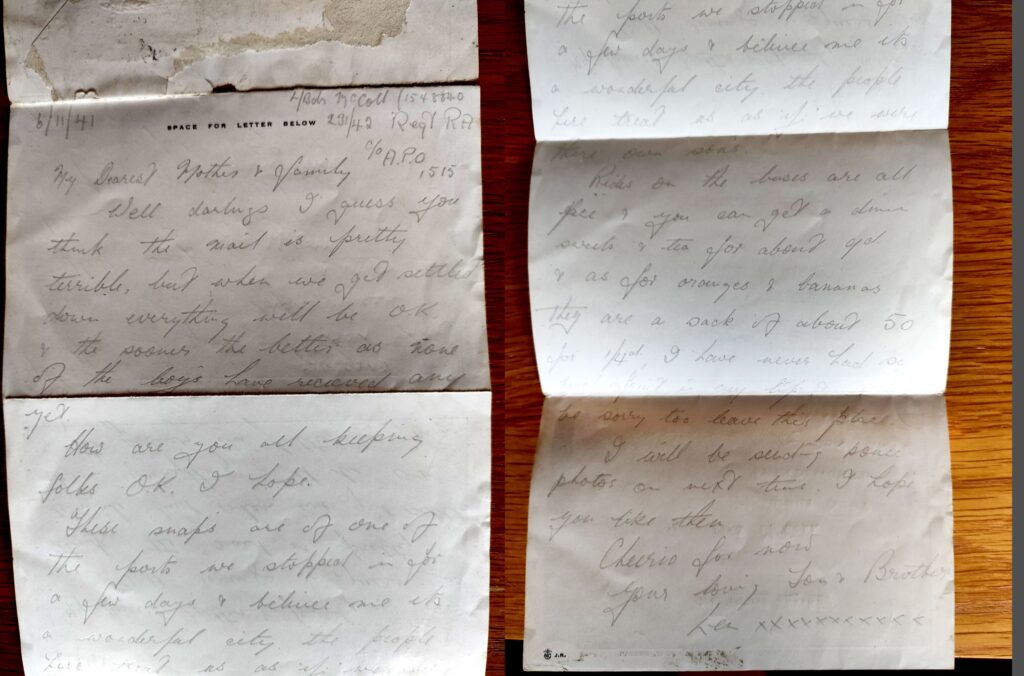 L/Bdr McColl (1548840
6/11/41
SPACE FOR LETTER BELOW
231/42 Regt RA
c/o A.P.O
1515
My Dearest Mother & family
Well darlings I guess you
think the mail is pretty
terrible, but when we get settled
down everything will be O.K.
& the sooner the better as none
of the boys have recieved any
yet
How are you all keeping
folks O.K. I hope.
These snaps are of one of
the ports we stopped in for
a few days & belivee me its
a wonderful city the people
here treat us as if we were
the ports we stopped in for
a few days & belivee me its
a wonderful city the people
here treat us as if we were
there own sons.
Rides on the buses are all
free & you can get a dinner
sweets & tea for about 9d.
& as for oranges & bananas
they are a sack of about 50
for 1/4d, I have never had so
in my life
be sorry too leave this place
I will be sending some
photos on next time. I hope
you like them
Cheerio for now
Your loving Son & Brother
Len xxxxxxxxxxx
J.R.